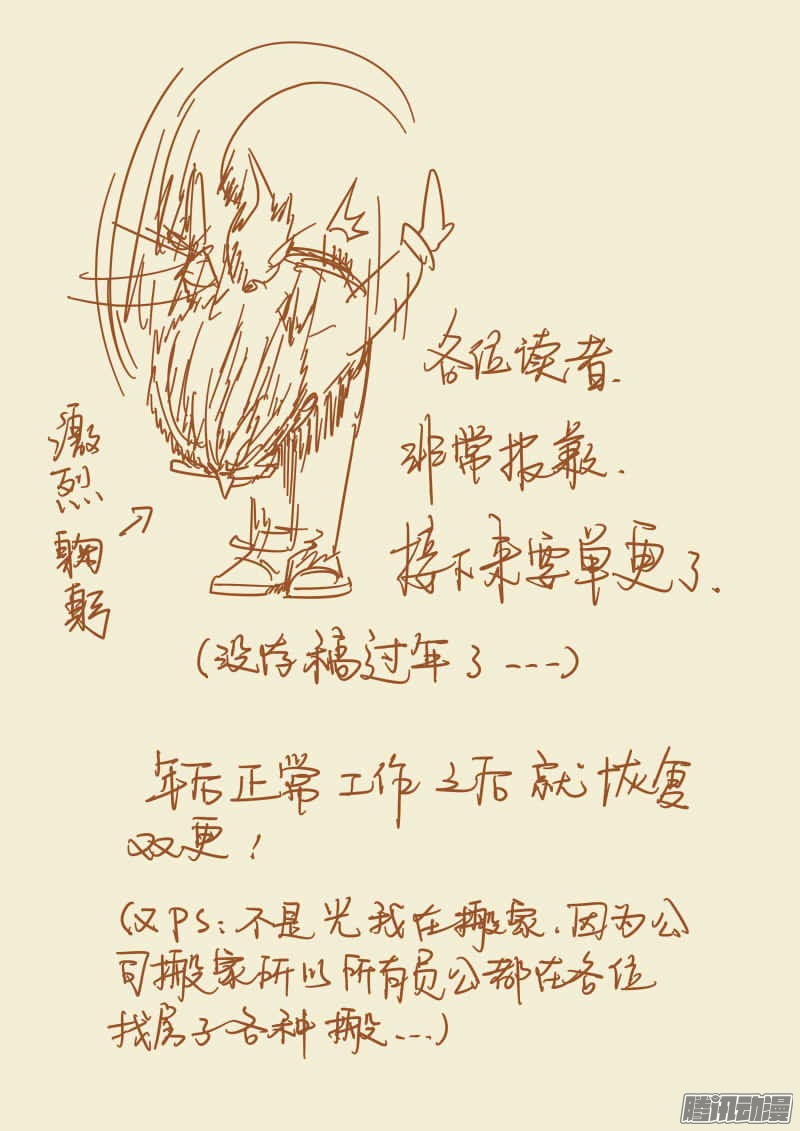 各位读者.
非常报歉.
接下来要单更了.
激烈鞠躬
(没存稿过年了----)
年后正常工作之后就恢复
双更!
(又PS:不是光我在搬家.因为公
司搬家所以所有员公都在各位
找房子各种搬...)
腾讯动漫